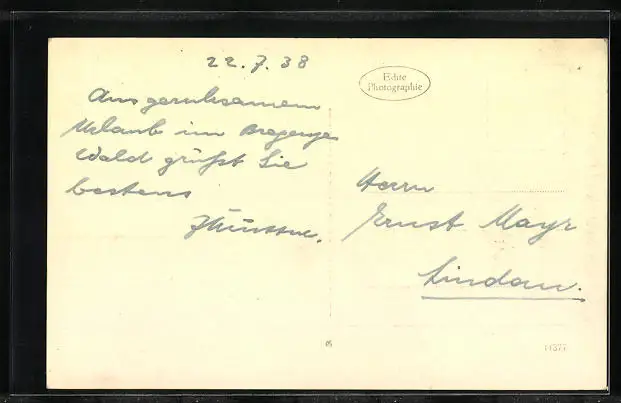 22.7.38
Echte
Photographie
Aus geruhsamem
Urlaub im Bregenze
Wald grüßt Sie
bestens
Herrn
Ernst Mayr
Lindau.
11377